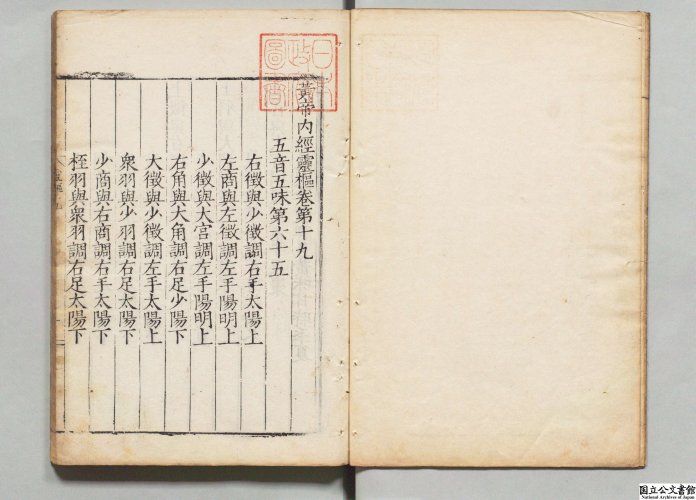 黃帝內經靈樞卷第十九
五音五味第六十五
右徵與少徵調右手太陽上
左商與左徵調左手陽明上
少徵與大宮調左手陽明上
右角與大角調右足少陽下
大徵與少徵調左手太陽上
衆羽與少羽調右足太陽下
少商與右商調右手太陽下
桎羽與衆羽調右足太陽下
日本
政府
圖書
国立公文書館
National Archives of Japan